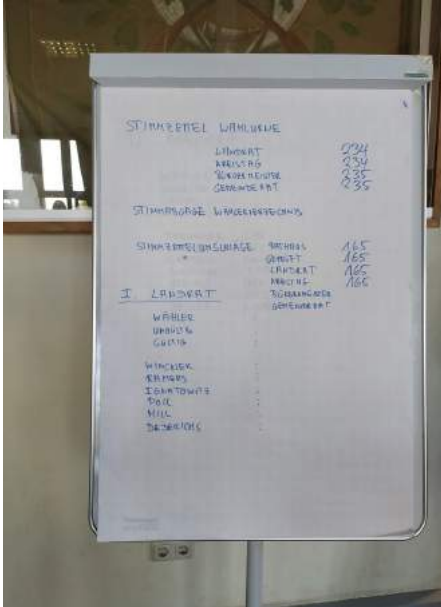 STIMMZETTEL WAHLURNE
LANDRAT 234
KREISTAG 234
BÜRGERMEISTER 235
GEMEINDERAT 235
STIMMABGABE WÄHLERVERZEICHNIS
STIMMZETTELUMSCHLÄGE 165
165
LANDRAT 165
KREISTAG 165
BÜRGERMEISTER
GEMEINDERAT
I LANDRAT
WÄHLER :
UNGÜLTIG :
GÜLTIG :
:
:
IGNATOWITZ :
:
HILL :
: